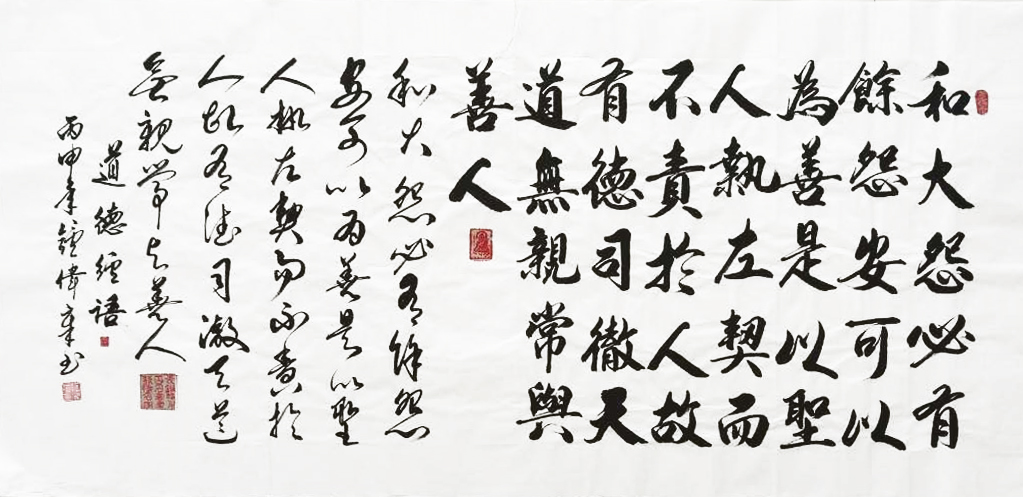 和大怨必有
餘怨安可以
為善是以聖
人執左契而
不責於人故
有德司徹天
道無親常與
善人
和大怨必有餘怨
安可以為善是以聖
人執左契而不責於
人故有德司徹天道
無親常與善人
道德經語
丙申年鐘偉章书